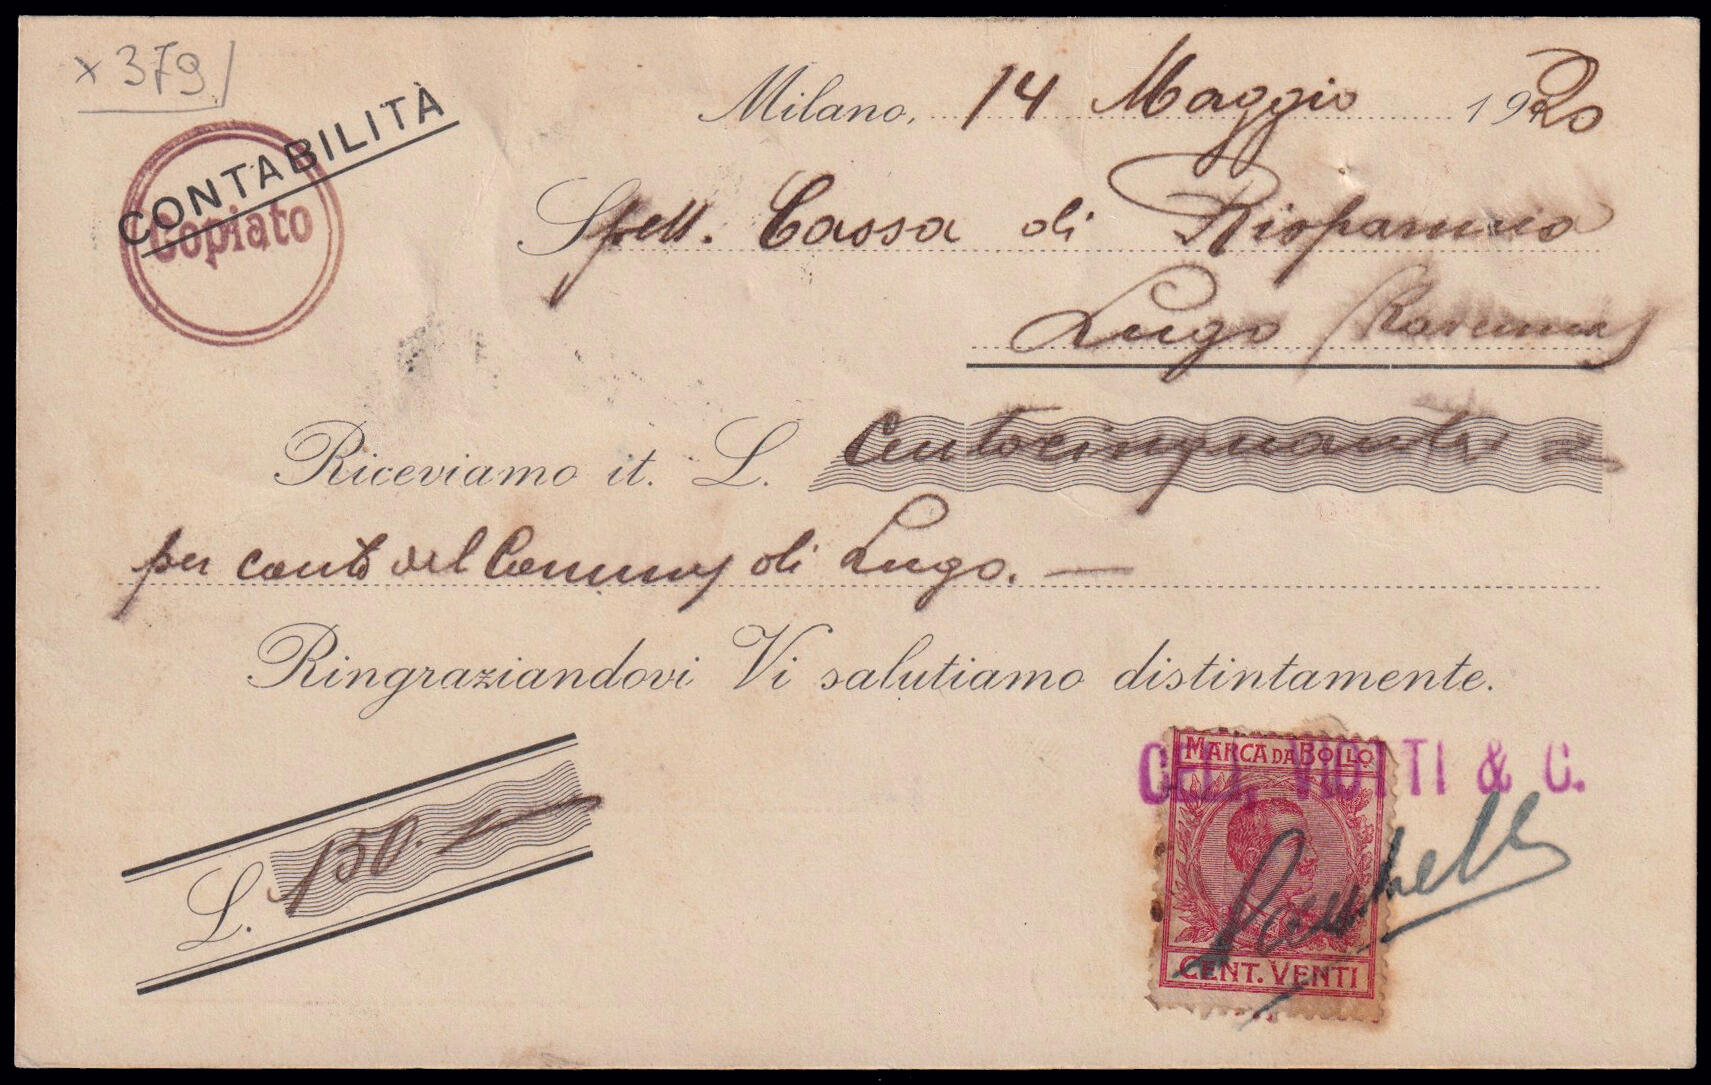 x 379
CONTABILITÀ
Copiato
Milano, 14 Maggio 1920
Spett. Cassa di Risparmio
Lugo (Ravenna)
Riceviamo it. L. Centocinquanta
per conto del Comune di Lugo. —
Ringraziandovi Vi salutiamo distintamente.
L. 150.—
MARCA DA BOLLO
VIOTTI & C.
CENT. VENTI